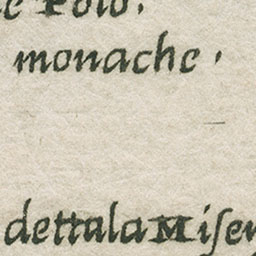 Polo.
monache.
dettala Miser